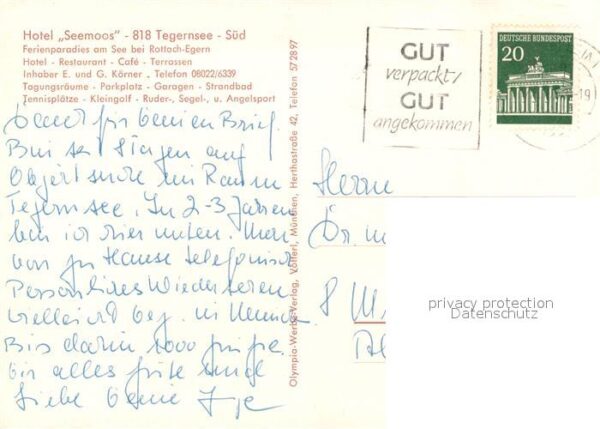 Hotel „Seemoos" - 818 Tegernsee - Süd
Ferienparadies am See bei Rottach-Egern
Hotel - Restaurant - Café - Terrassen
Inhaber E. und G. Körner . Telefon 08022/6339
Tagungsräume - Parkplatz - Garagen - Strandbad
Tennisplätze - Kleingolf - Ruder-, Segel-, u. Angelsport
Dank für Deinen Brief.
Bin seit Tagen auf
Objektsuche im Raum
Tegernsee. In 2-3 Jahren
bin ich hier unten.
von zu Hause telefonisch
Persönliches Wiedersehen
vielleicht
Bis dahin 1000
alles Gute und
Liebe Deine
Olympia-Werbe-Verlag, Völferl, München, Herthastraße 42, Telefon 57 28 97
GUT
verpackt/
GUT
angekommen
DEUTSCHE BUNDESPOST
20
-19
Herrn
Dr.
8
privacy protection
Datenschutz